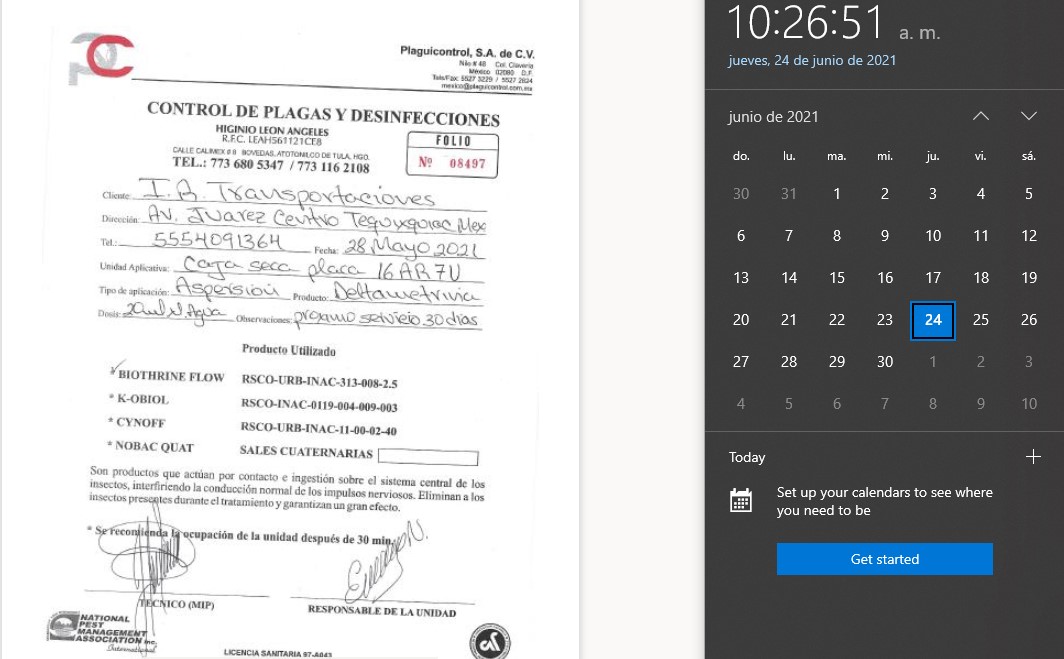 Plaguicontrol, S.A. de C.V.
Nilo # 48 Col. Clavería
México 02080 D.F.
Tels/Fax: 5527 3229 / 5527 2824
mexico@plaguicontrol.com.mx
CONTROL DE PLAGAS Y DESINFECCIONES
HIGINIO LEON ANGELES
R.F.C. LEAH561121CE8
CALLE CALIMEX # 8 BOVEDAS, ATOTONILCO DE TULA, HGO.
TEL.: 773 680 5347 / 773 116 2108
FOLIO
Nº 08497
Cliente: I.B. Transportaciones
Dirección: AV. Juarez Centro Tequixquiac Mex
Tel.: 5554091364 Fecha: 28 Mayo 2021
Unidad Aplicativa: Caja seca placa 16AR7U
Tipo de aplicación: Aspersión Producto: Deltametrivia
Dosis: 20ml Agua Observaciones: proximo servicio 30 dias
Producto Utilizado
BIOTHRINE FLOW RSCO-URB-INAC-313-008-2.5
* K-OBIOL RSCO-INAC-0119-004-009-003
* CYNOFF RSCO-URB-INAC-11-00-02-40
* NOBAC QUAT SALES CUATERNARIAS
Son productos que actúan por contacto e ingestión sobre el sistema central de los
insectos, interfiriendo la conducción normal de los impulsos nerviosos. Eliminan a los
insectos presentes durante el tratamiento y garantizan un gran efecto.
* Se recomienda la ocupación de la unidad después de 30 min.
TÉCNICO (MIP)
RESPONSABLE DE LA UNIDAD
NATIONAL
PEST
MANAGEMENT
ASSOCIATION Inc.
International
LICENCIA SANITARIA 97-A043
10:26:51 a. m.
jueves, 24 de junio de 2021
junio de 2021
do. lu. ma. mi. ju. vi. sá.
30 31 1 2 3 4 5
6 7 8 9 10 11 12
13 14 15 16 17 18 19
20 21 22 23 24 25 26
27 28 29 30 1 2 3
4 5 6 7 8 9 10
Today
Set up your calendars to see where
you need to be
Get started